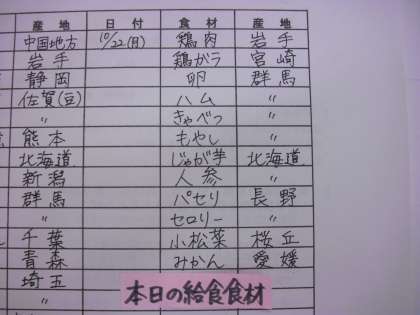 産地 日付 食材 産地
中国地方 10/22(月) 鶏肉 岩手
岩手 鶏ガラ 宮崎
静岡 卵 群馬
佐賀(豆) ハム 〃
〃 きゃべつ 〃
熊本 もやし 〃
北海道 じゃが芋 北海道
新潟 人参 〃
群馬 パセリ 長野
〃 セロリー 〃
千葉 小松菜 桜丘
青森 みかん 愛媛
埼玉
〃
本日の給食食材